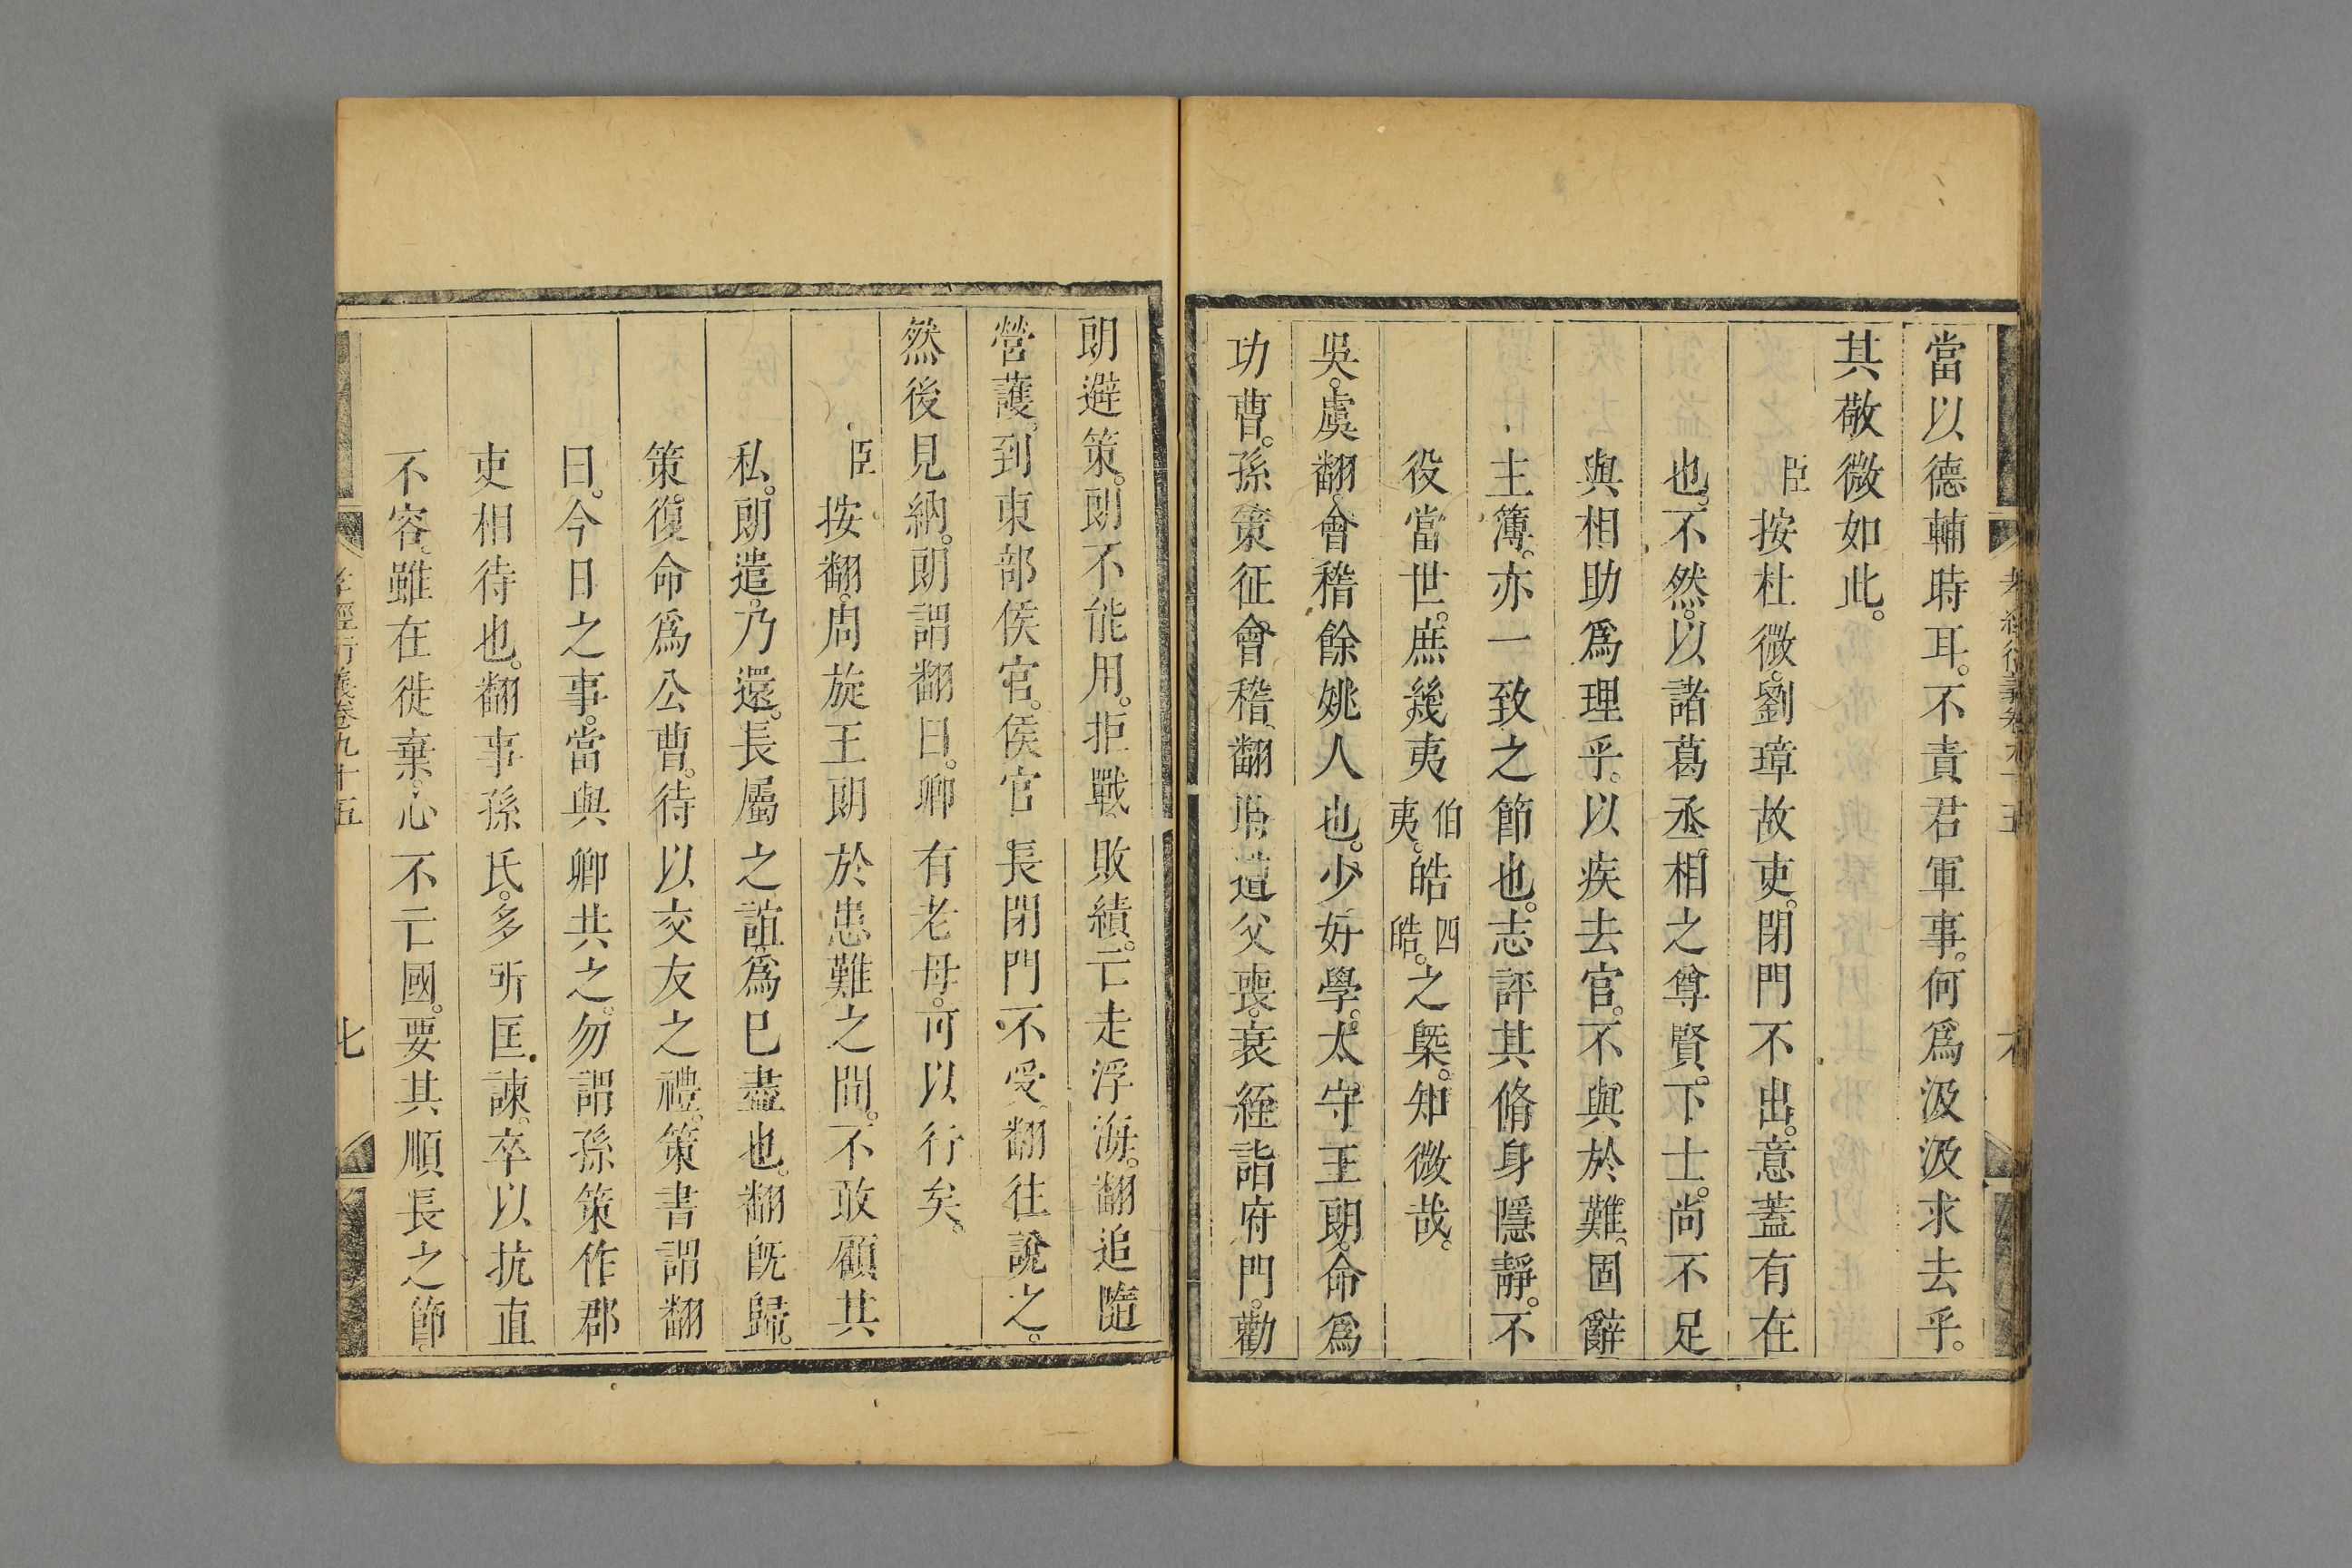 孝經衍義卷九十五
當以德輔時耳。不責君軍事。何爲汲汲求去乎。
其敬微如此。
臣按杜微。劉璋故吏。閉門不出。意蓋有在
也。不然。以諸葛丞相之尊賢。下士。尚不足
與相助爲理乎。以疾去官。不與於難。固辭
主簿。亦一致之節也。志評其脩身隱靜。不
役當世。庶幾夷伯夷。皓四皓。之槩。知微哉。
吳。虞翻。會稽餘姚人也。少好學。太守王朗。命爲
功曹。孫策征會稽。翻時遭父喪。衰絰詣府門。勸
朗避策。朗不能用。拒戰敗績。亡走浮海。翻追隨
營護。到東部侯官。侯官長閉門不受。翻往說之。
然後見納。朗謂翻曰。卿有老母。可以行矣。
臣按翻。周旋王朗於患難之間。不敢顧其
私。朗遣。乃還。長屬之誼。爲已盡也。翻旣歸。
策。復命爲公曹。待以交友之禮。策書謂翻
曰。今日之事。當與卿共之。勿謂孫策作郡
吏相待也。翻事孫氏。多所匡諫。卒以抗直
不容。雖在徙棄。心不亡國。要其順長之節。
孝經衍義卷九十五
七